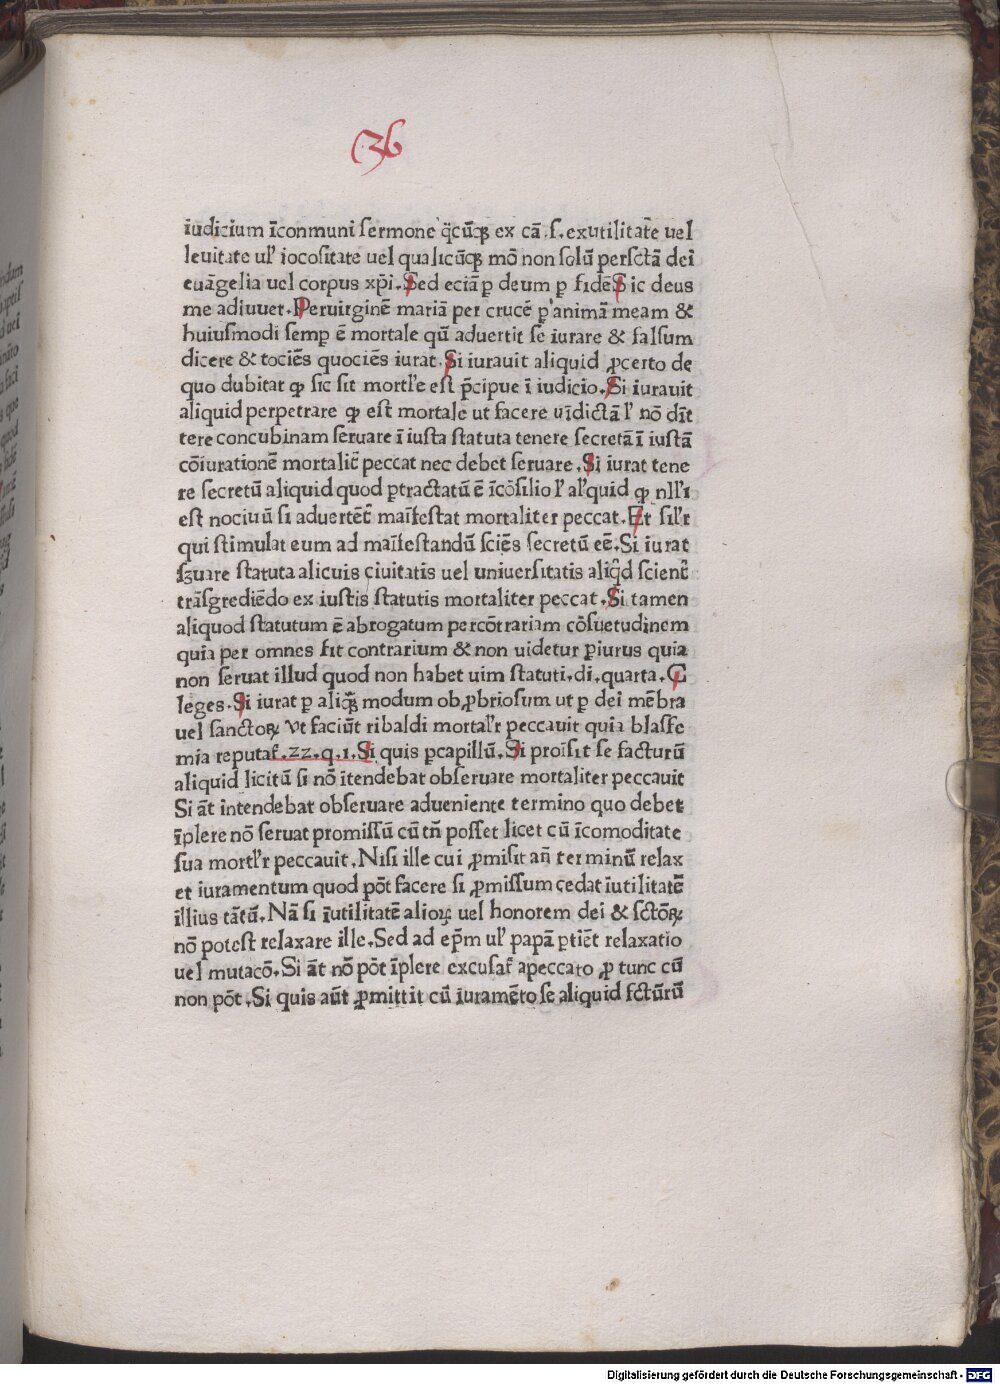 36
iudicium ĩconmuni sermone q̃cũqꝫ ex cã .s. exutilitate uel
leuitate ul' iocositate uel qualicũqꝫ mõ non solũ persctã dei
euãgelia uel corpus xp̃i. Sed eciã p̲ deum p̲ fidẽ Sic deus
me adiuuet. Peruirginẽ mariã per crucẽ p̲ animã meam &
huiusmodi semp̲ ẽ mortale qũ aduertit se iurare & falsum
dicere & tociẽs quociẽs iurat. Si iurauit aliquid ꝓcerto de
quo dubitat ꝙ sic sit mortl'e est p̃cipue ĩ iudicio. Si iurauit
aliquid perpetrare ꝙ est mortale ut facere uĩdictã l' nõ dĩt
tere concubinam seruare ĩ iusta statuta tenere secretã ĩ iustã
cõiurationẽ mortalit̃ peccat nec debet seruare. Si iurat tene
re secretũ aliquid quod p̲tractatũ ẽ ĩcõsilio l' al'quid ꝙ nll'i
est nociuũ si aduertẽt̃ maĩfestat mortaliter peccat. Et sil'r
qui stimulat eum ad maĩfestandũ sciẽs secretũ eẽ. Si iurat
sꝫuare statuta alicuis ciuitatis uel uniuersitatis aliq̃d scient̃
trãsgrediẽdo ex iustis statutis mortaliter peccat. Si tamen
aliquod statutum ẽ abrogatum percõtrariam cõsuetudinem
quia per omnes fit contrarium & non uidetur p̲iurus quia
non seruat illud quod non habet uim statuti. di. quarta. C
leges. Si iurat p̲ aliqẽ modum ob ꝓbriosum ut p̲ dei mẽbra
uel sanctoꝝ Vt faciũt ribaldi mortal'r peccauit quia blasfe
mia reputat̃. 22. q. 1. Si quis p̲capillũ. Si proĩsit se facturũ
aliquid licitũ si nõ ĩtendebat obseruare mortaliter peccauit
Si ãt intendebat obseruare adueniente termino quo debet
ĩplere nõ seruat promissũ cũ tñ posset licet cũ ĩcomoditate
sua mortl'r peccauit. Nisi ille cui ꝓmisit añ terminũ relax
et iuramentum quod põt facere si ꝓmissum cedat ĩutilitatẽ
illius tãtũ. Nã si ĩutilitatẽ alioꝝ uel honorem dei & sctõꝝ
nõ potest relaxare ille. Sed ad ep̃m ul' papã p̲tiẽt relaxatio
uel mutacõ. Si ãt nõ põt ĩplere excusat̃ apeccato ꝓ tunc cũ
non põt. Si quis aũt ꝓmittit cũ iuramẽto se aliquid fctũrũ
Digitalisierung gefördert durch die Deutsche Forschungsgemeinschaft - DFG